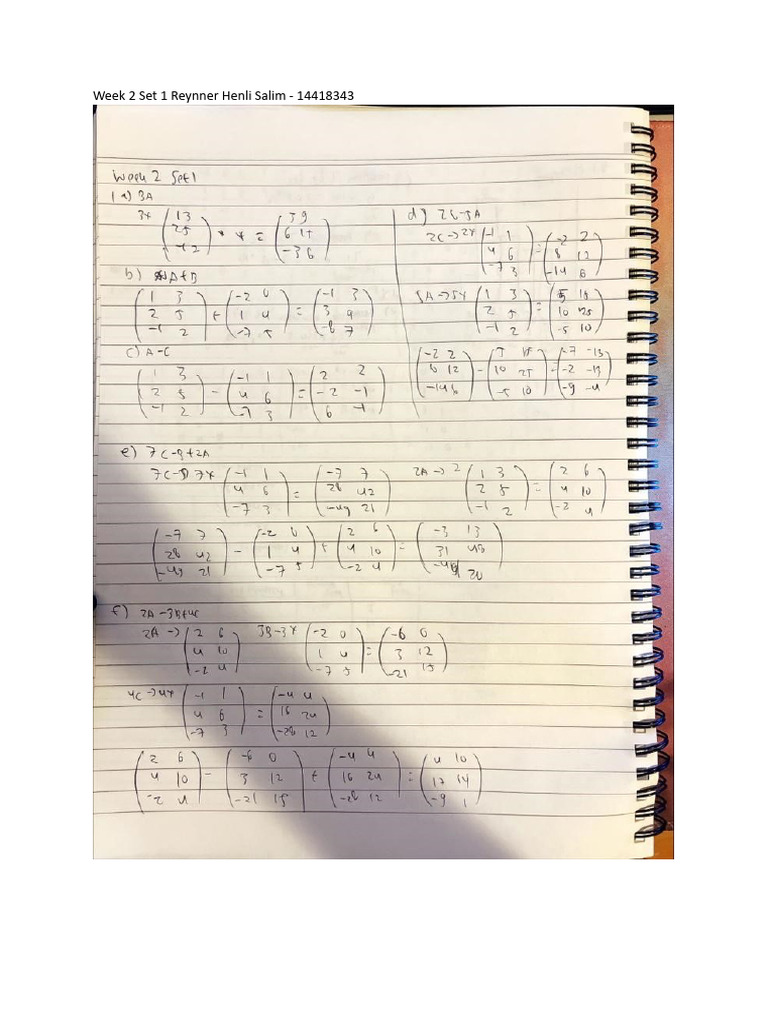 Week 2 Set 1 Reynner Henli Salim - 14418343
Week 2 Set 1
1 a) 3A
3x ( 1 3
2 5
-1 2 ) = ( 3 9
6 15
-3 6 )
b) A+B
( 1 3
2 5
-1 2 ) + ( -2 0
1 4
-7 5 ) = ( -1 3
3 9
-8 7 )
c) A-C
( 1 3
2 5
-1 2 ) - ( -1 1
4 6
-7 3 ) = ( 2 2
-2 -1
6 -1 )
d) 2C-5A
2C → 2x ( -1 1
4 6
-7 3 ) = ( -2 2
8 12
-14 6 )
5A → 5x ( 1 3
2 5
-1 2 ) = ( 5 15
10 25
-5 10 )
( -2 2
8 12
-14 6 ) - ( 5 15
10 25
-5 10 ) = ( -7 -13
-2 -13
-9 -4 )
e) 7C-B+2A
7C → 7x ( -1 1
4 6
-7 3 ) = ( -7 7
28 42
-49 21 )
2A → 2 ( 1 3
2 5
-1 2 ) = ( 2 6
4 10
-2 4 )
( -7 7
28 42
-49 21 ) - ( -2 0
1 4
-7 5 ) + ( 2 6
4 10
-2 4 ) = ( -3 13
31 48
20 )
f) 2A-3B+4C
2A → ( 2 6
4 10
-2 4 )
3B-3x ( -2 0
1 4
-7 5 ) = ( -6 0
3 12
-21 15 )
4C → 4x ( -1 1
4 6
-7 3 ) = ( -4 4
16 24
-28 12 )
( 2 6
4 10
-2 4 ) - ( -6 0
3 12
-21 15 ) + ( -4 4
16 24
-28 12 ) = ( 4 10
17 14
-9 1 )